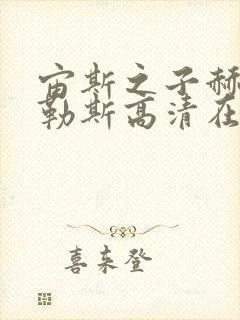 宙斯之子赫
勒斯高清在
喜来登